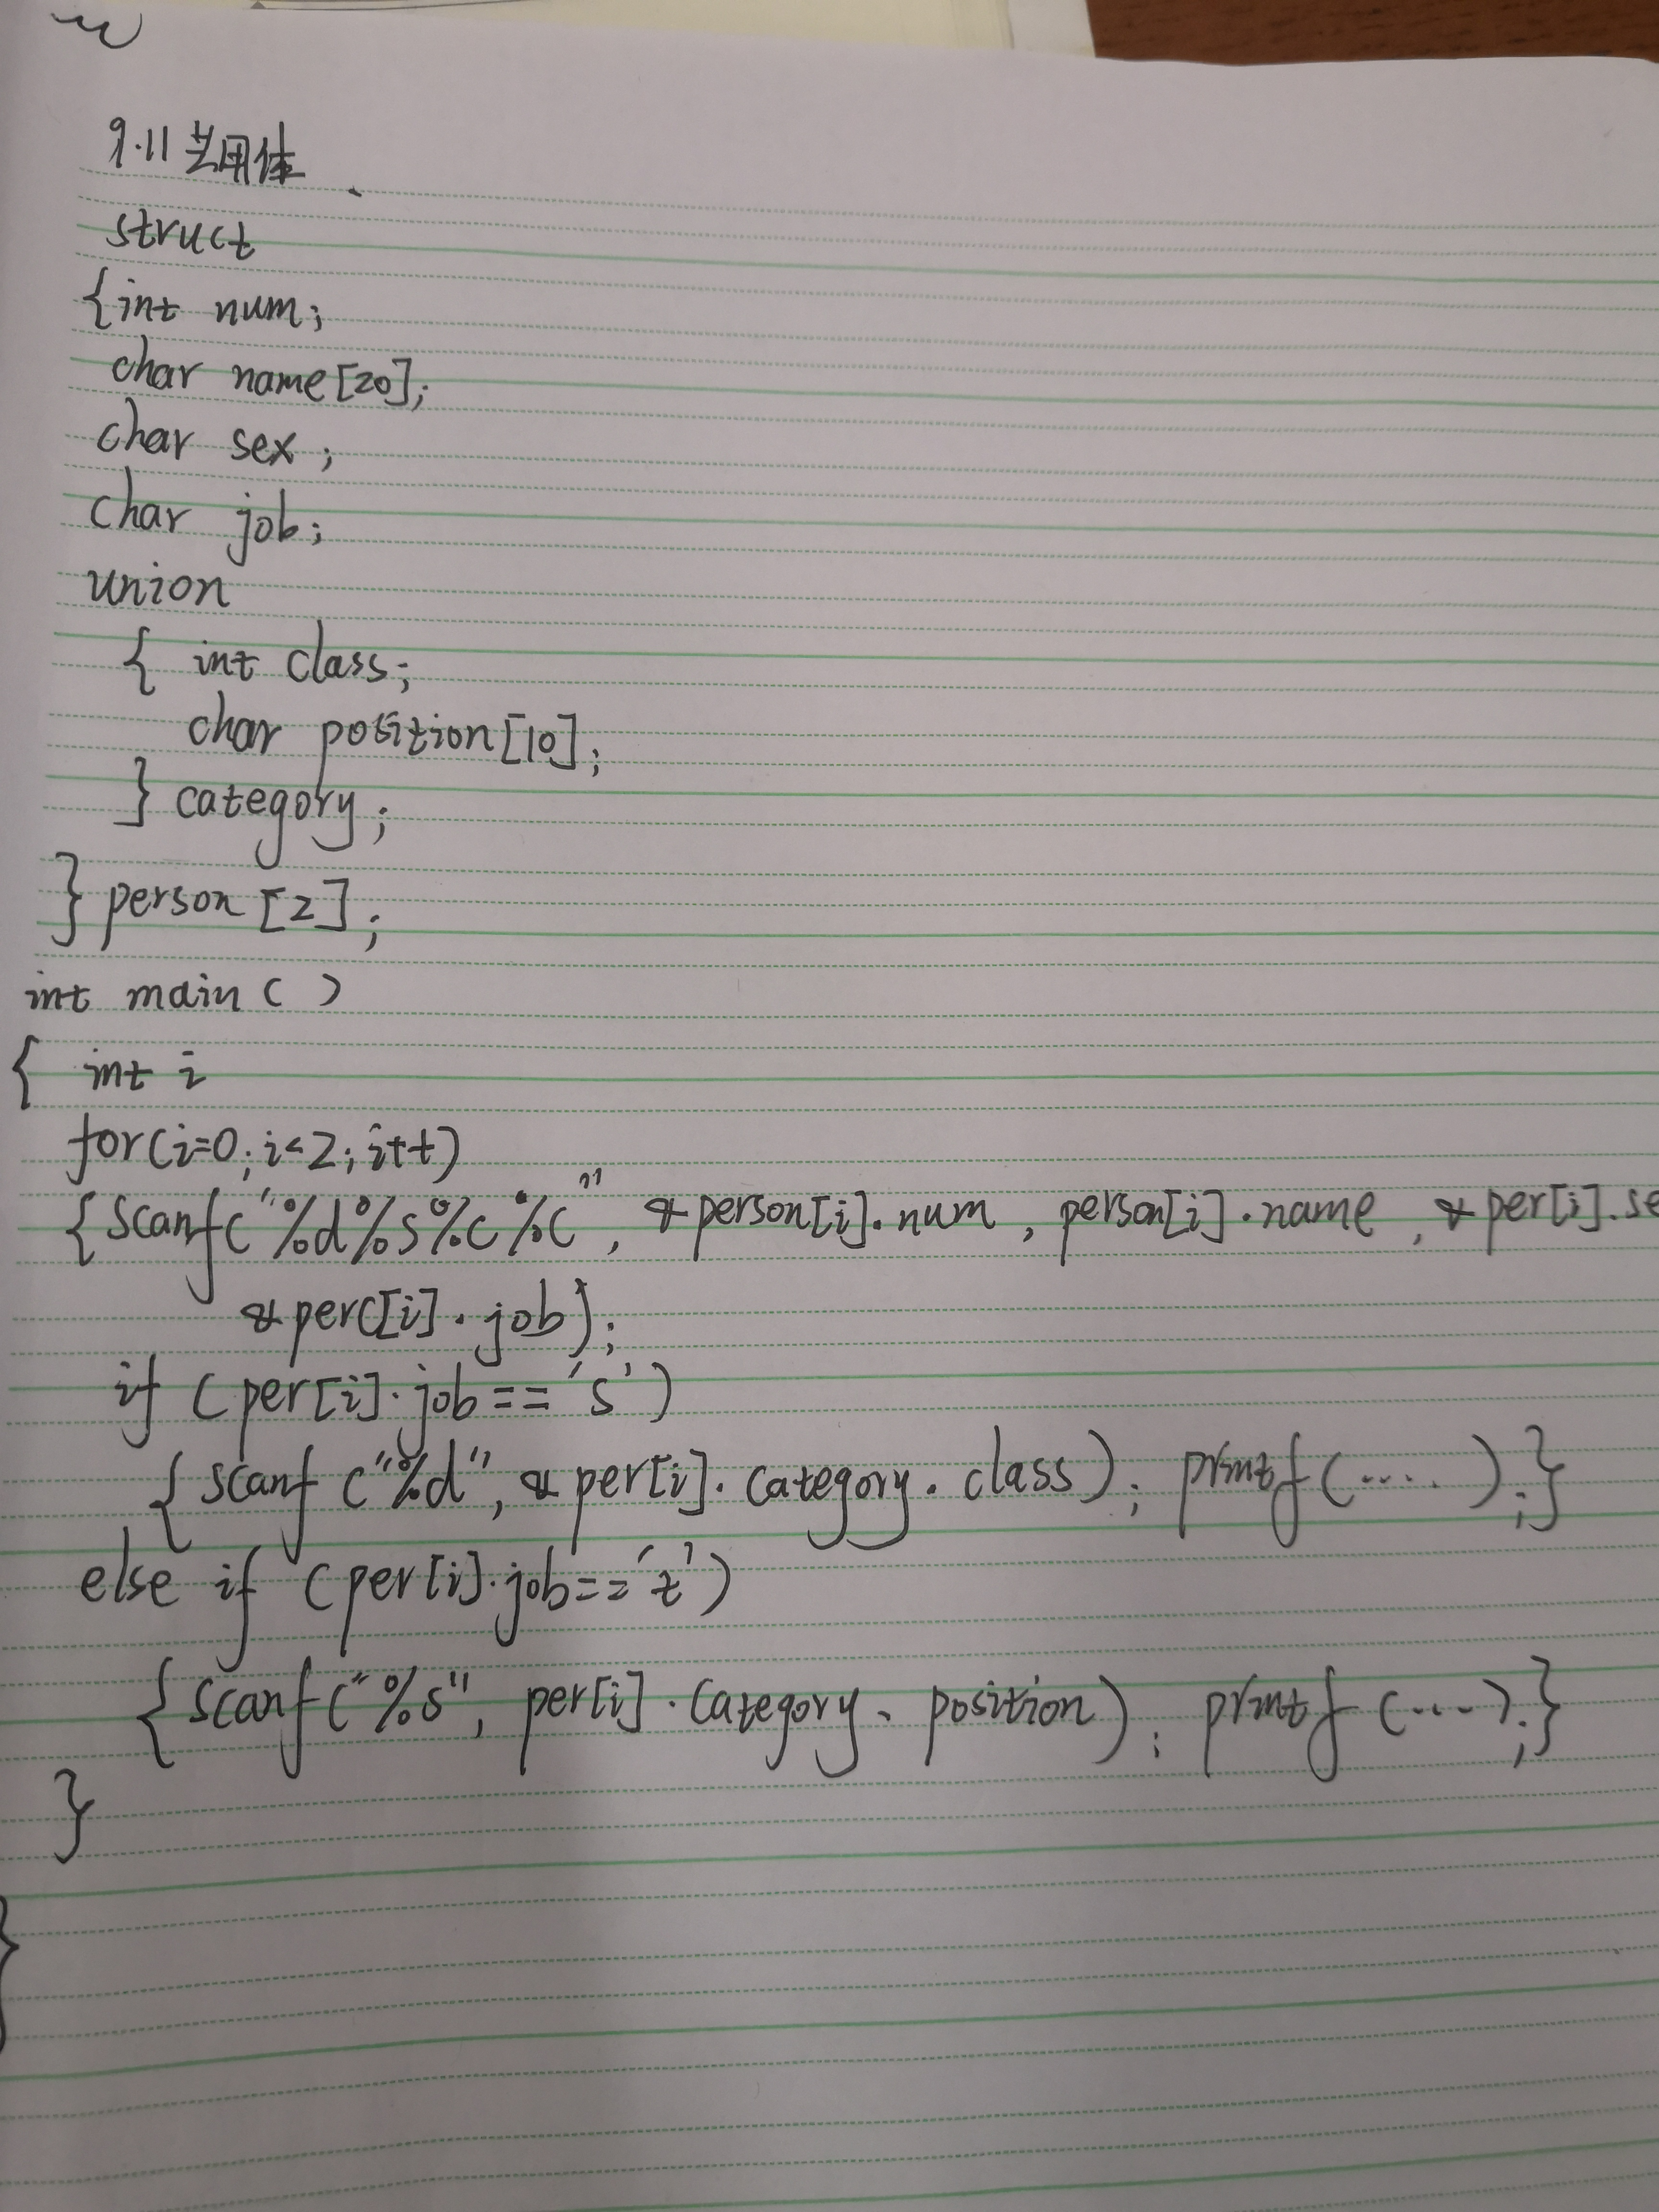 9.11 共用体
struct
{int num;
char name[20];
char sex;
char job;
union
{ int class;
char position[10];
} category;
} person[2];
int main( )
{ int i
for(i=0;i<2;i++)
{scanf("%d%s%c%c", &person[i].num, person[i].name, &per[i].se
&perc[i].job);
if (per[i].job=='s')
{scanf("%d", &per[i].category.class); printf(.....);}
else if (per[i].job=='t')
{scanf("%s", per[i].category.position); printf(....);}
}
}